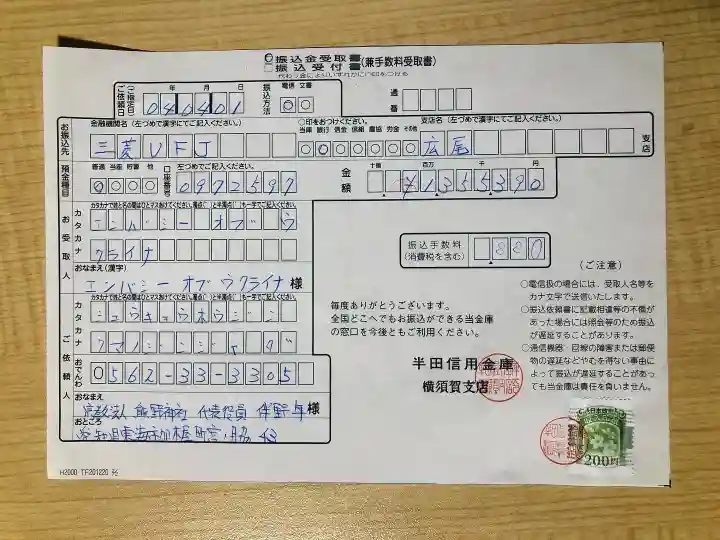 振込金受取書(兼手数料受取書)
振込受付書
年 月 日
ご依頼日(ご指定日)
040401
振込方法
電信 文書
通番
お振込先
金融機関名(左づめで漢字にてご記入ください。)
○印をおつけください。
支店名(左づめで漢字にてご記入ください。)
当庫 銀行 信金 信組 農協 労金 その他
三菱UFJ
広尾
支店
預金種目
普通 当座 貯蓄 他
口座番号
左づめでご記入ください。
0972597
金額
十億 百万 千 円
¥1355390
お受取人
カタカナ
エンバシー オブ ウ
クライナ
おなまえ(漢字)
エンバシー オブ ウクライナ 様
振込手数料
(消費税を含む)
880
(ご注意)
○電信扱の場合には、受取人名等を
カナ文字で送信いたします。
○振込依頼書に記載相違等の不備が
あった場合には照会等のため振込
が遅延することがあります。
○通信機器・回線の障害または郵便
物の遅延などやむを得ない事由に
よって振込が遅延することがあっ
ても当金庫は責任を負いません。
毎度ありがとうございます。
全国どこへでもお振込ができる当金庫
の窓口を今後ともご利用ください。
半田信用金庫
横須賀支店
ご依頼人
カタカナ
シュウキョウホウジン
クマノジンジャ
おでんわ
0562-33-3305
おなまえ
宗教法人 熊野神社 代表役員 様
おところ
愛知県東海市加木屋町宮ノ脇43
200円
H2000 TF201220